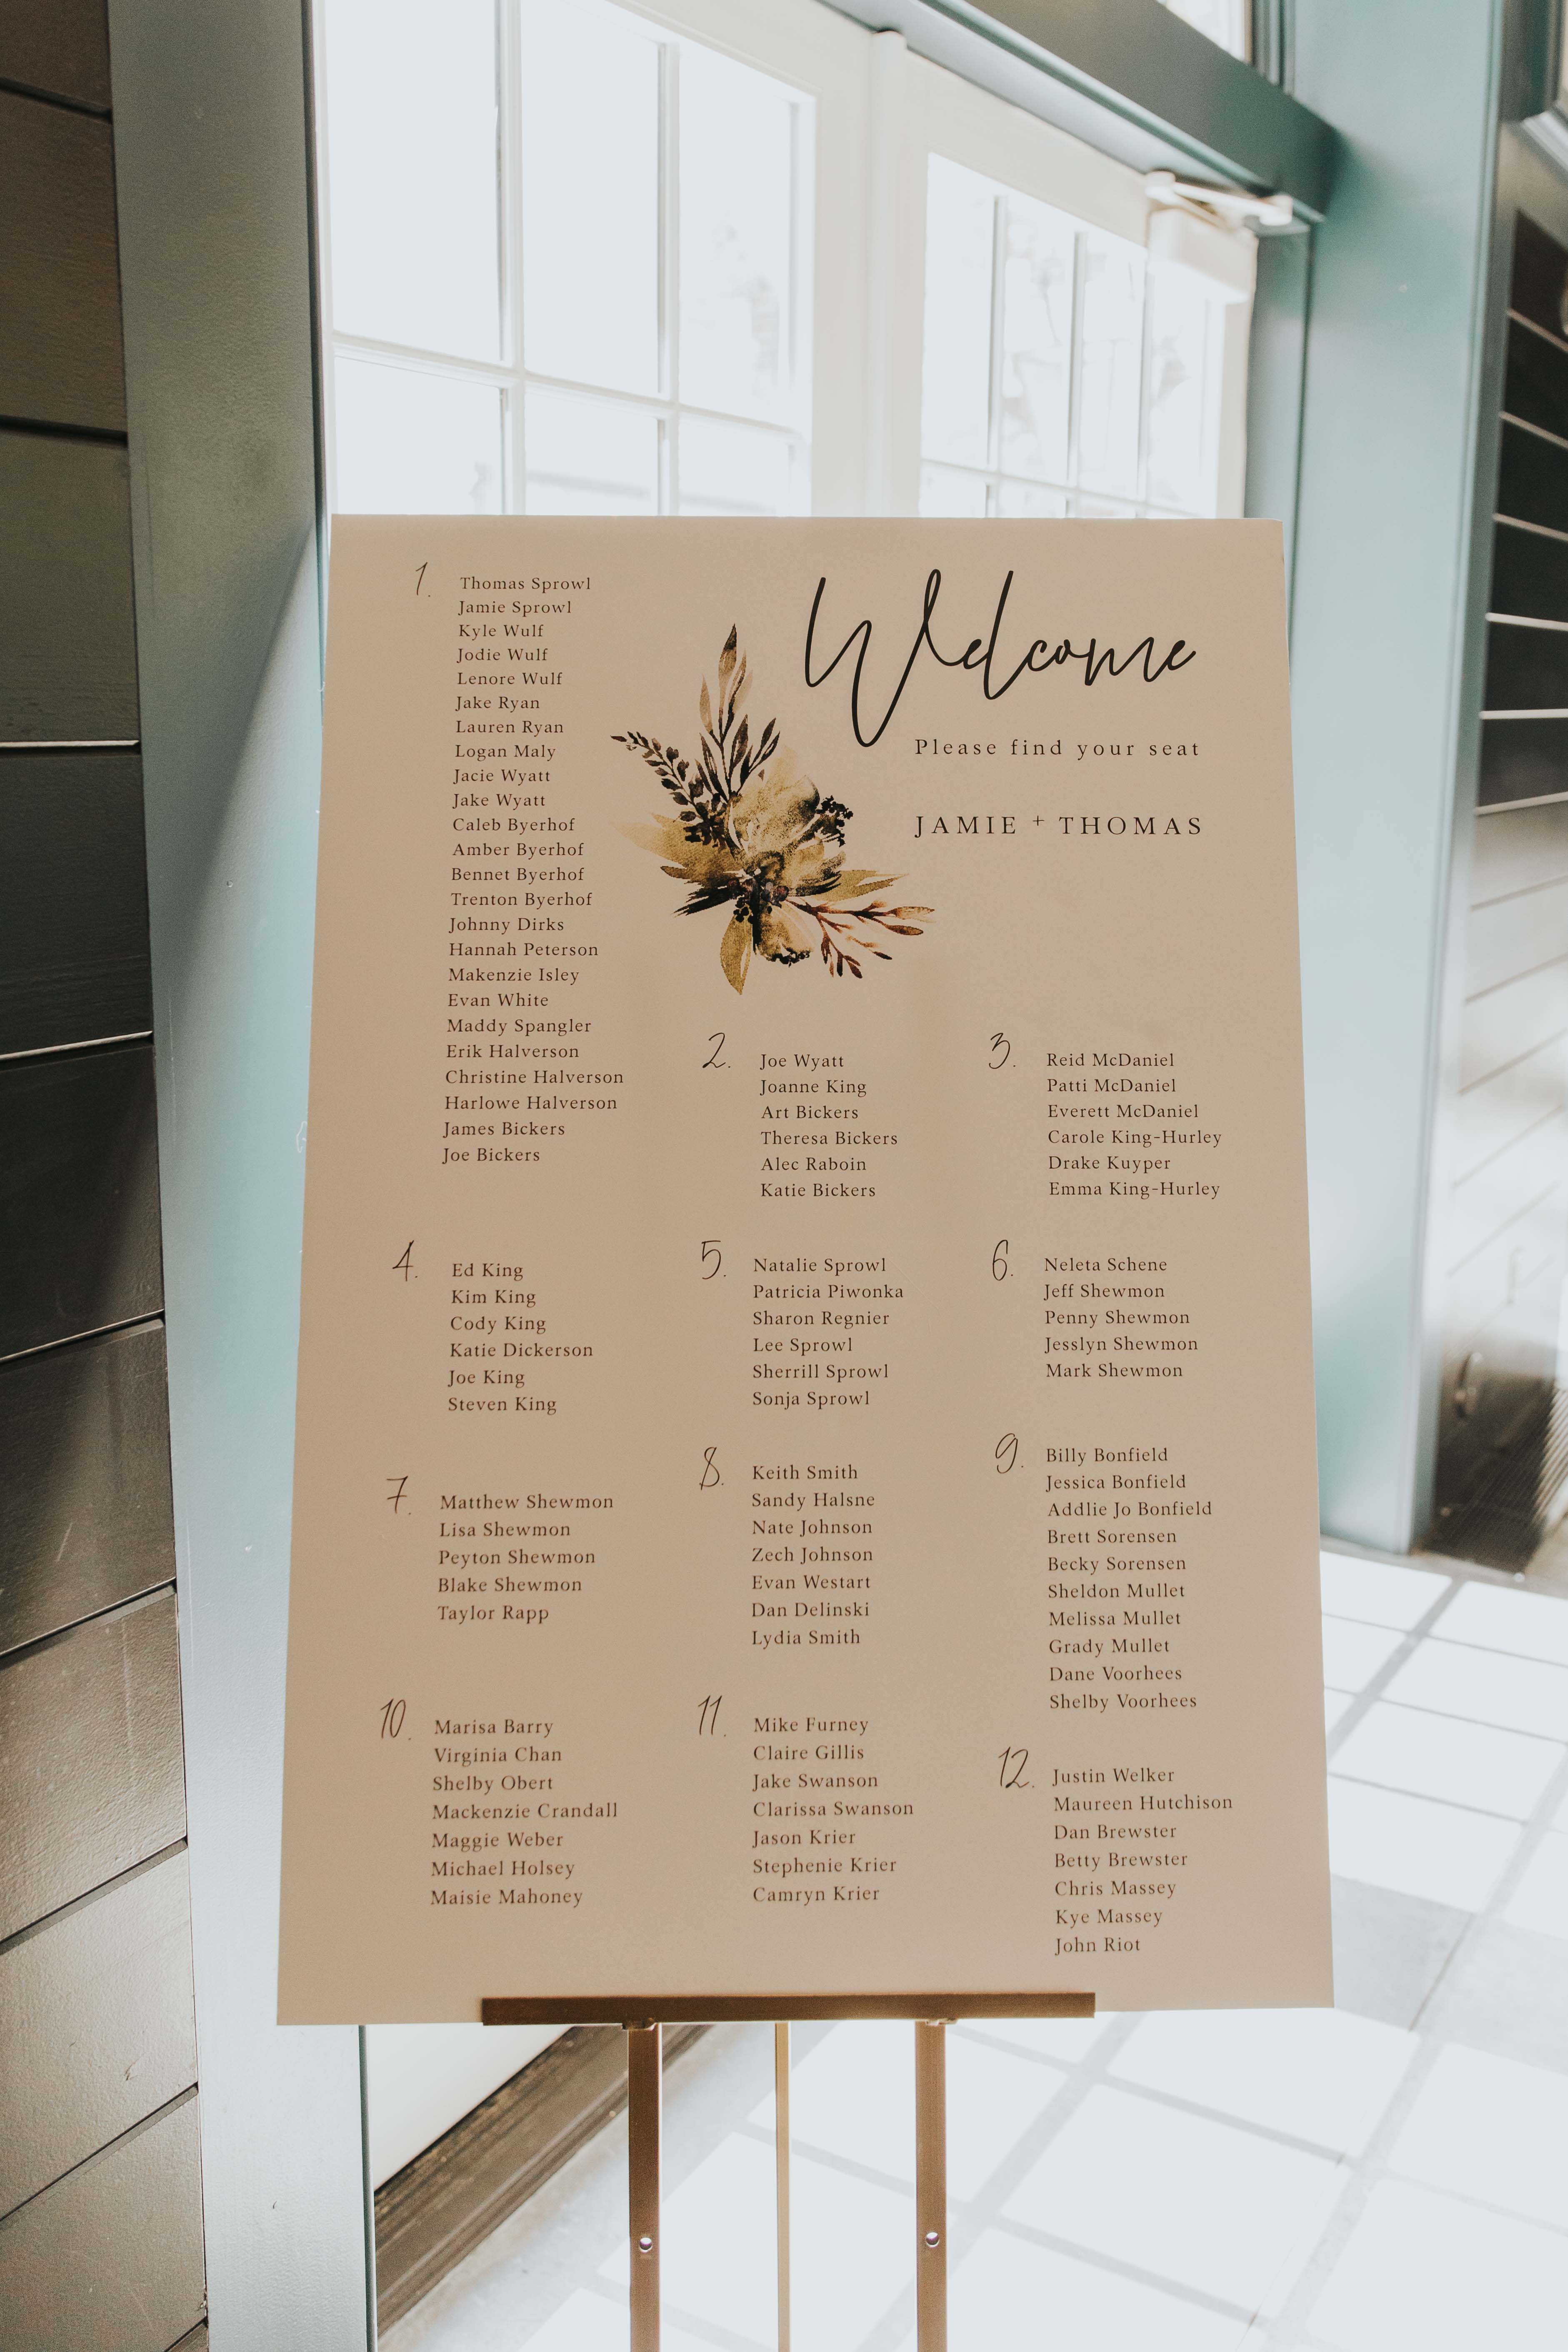 1.
Thomas Sprowl
Jamie Sprowl
Kyle Wulf
Jodie Wulf
Lenore Wulf
Jake Ryan
Lauren Ryan
Logan Maly
Jacie Wyatt
Jake Wyatt
Caleb Byerhof
Amber Byerhof
Bennet Byerhof
Trenton Byerhof
Johnny Dirks
Hannah Peterson
Makenzie Isley
Evan White
Maddy Spangler
Erik Halverson
Christine Halverson
Harlowe Halverson
James Bickers
Joe Bickers
Welcome
Please find your seat
JAMIE + THOMAS
2.
Joe Wyatt
Joanne King
Art Bickers
Theresa Bickers
Alec Raboin
Katie Bickers
3.
Reid McDaniel
Patti McDaniel
Everett McDaniel
Carole King-Hurley
Drake Kuyper
Emma King-Hurley
4.
Ed King
Kim King
Cody King
Katie Dickerson
Joe King
Steven King
5.
Natalie Sprowl
Patricia Piwonka
Sharon Regnier
Lee Sprowl
Sherrill Sprowl
Sonja Sprowl
6.
Neleta Schene
Jeff Shewmon
Penny Shewmon
Jesslyn Shewmon
Mark Shewmon
7.
Matthew Shewmon
Lisa Shewmon
Peyton Shewmon
Blake Shewmon
Taylor Rapp
8.
Keith Smith
Sandy Halsne
Nate Johnson
Zech Johnson
Evan Westart
Dan Delinski
Lydia Smith
9.
Billy Bonfield
Jessica Bonfield
Addlie Jo Bonfield
Brett Sorensen
Becky Sorensen
Sheldon Mullet
Melissa Mullet
Grady Mullet
Dane Voorhees
Shelby Voorhees
10.
Marisa Barry
Virginia Chan
Shelby Obert
Mackenzie Crandall
Maggie Weber
Michael Holsey
Maisie Mahoney
11.
Mike Furney
Claire Gillis
Jake Swanson
Clarissa Swanson
Jason Krier
Stephenie Krier
Camryn Krier
12.
Justin Welker
Maureen Hutchison
Dan Brewster
Betty Brewster
Chris Massey
Kye Massey
John Riot